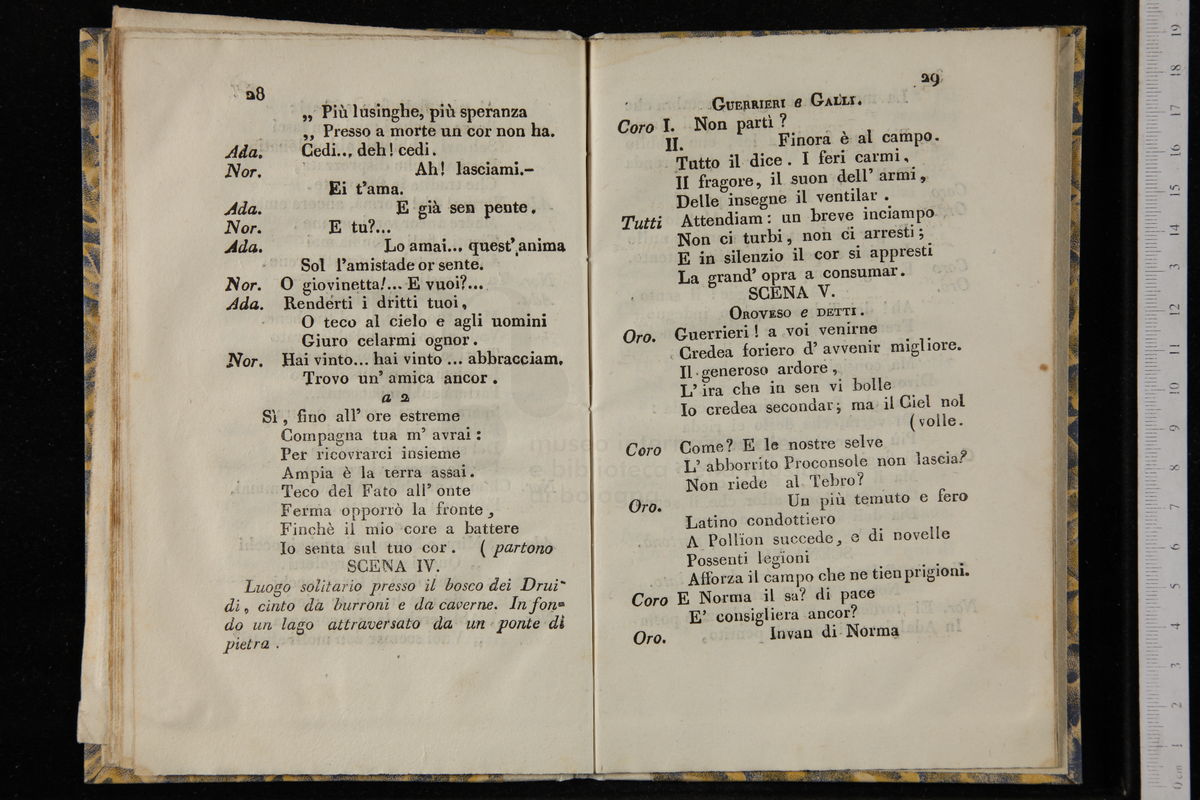 28
„ Più lusinghe, più speranza
„ Presso a morte un cor non ha.
Ada. Cedi.., deh! cedi.
Nor. Ah! lasciami.–
Ei t'ama.
Ada. E già sen pente.
Nor. E tu?...
Ada. Lo amai... quest' anima
Sol l'amistade or sente.
Nor. O giovinetta!... E vuoi?...
Ada. Renderti i dritti tuoi,
O teco al cielo e agli uomini
Giuro celarmi ognor.
Nor. Hai vinto... hai vinto ... abbracciam.
Trovo un' amica ancor.
a 2
Sì, fino all' ore estreme
Compagna tua m' avrai:
Per ricovrarci insieme
Ampia è la terra assai.
Teco del Fato all' onte
Ferma opporrò la fronte,
Finchè il mio core a battere
Io senta sul tuo cor. ( partono
SCENA IV.
Luogo solitario presso il bosco dei Drui-
di, cinto da burroni e da caverne. In fon-
do un lago attraversato da un ponte di
pietra.
29
GUERRIERI e GALLI.
Coro I. Non partì?
II. Finora è al campo.
Tutto il dice. I feri carmi,
Il fragore, il suon dell' armi,
Delle insegne il ventilar.
Tutti Attendiam: un breve inciampo
Non ci turbi, non ci arresti;
E in silenzio il cor si appresti
La grand' opra a consumar.
SCENA V.
OROVESO e DETTI.
Oro. Guerrieri! a voi venirne
Credea foriero d' avvenir migliore.
Il generoso ardore,
L' ira che in sen vi bolle
Io credea secondar; ma il Ciel nol
(volle.
Coro Come? E le nostre selve
L' abborrito Proconsole non lascia?
Non riede al Tebro?
Oro. Un più temuto e fero
Latino condottiero
A Pollïon succede, e di novelle
Possenti legïoni
Afforza il campo che ne tien prigioni.
Coro E Norma il sa? di pace
E' consigliera ancor?
Oro. Invan di Norma
museo
e biblioteca
di bologna
0 cm 1 2 3 4 5 6 7 8 9 10 11 12 13 14 15 16 17 18 19